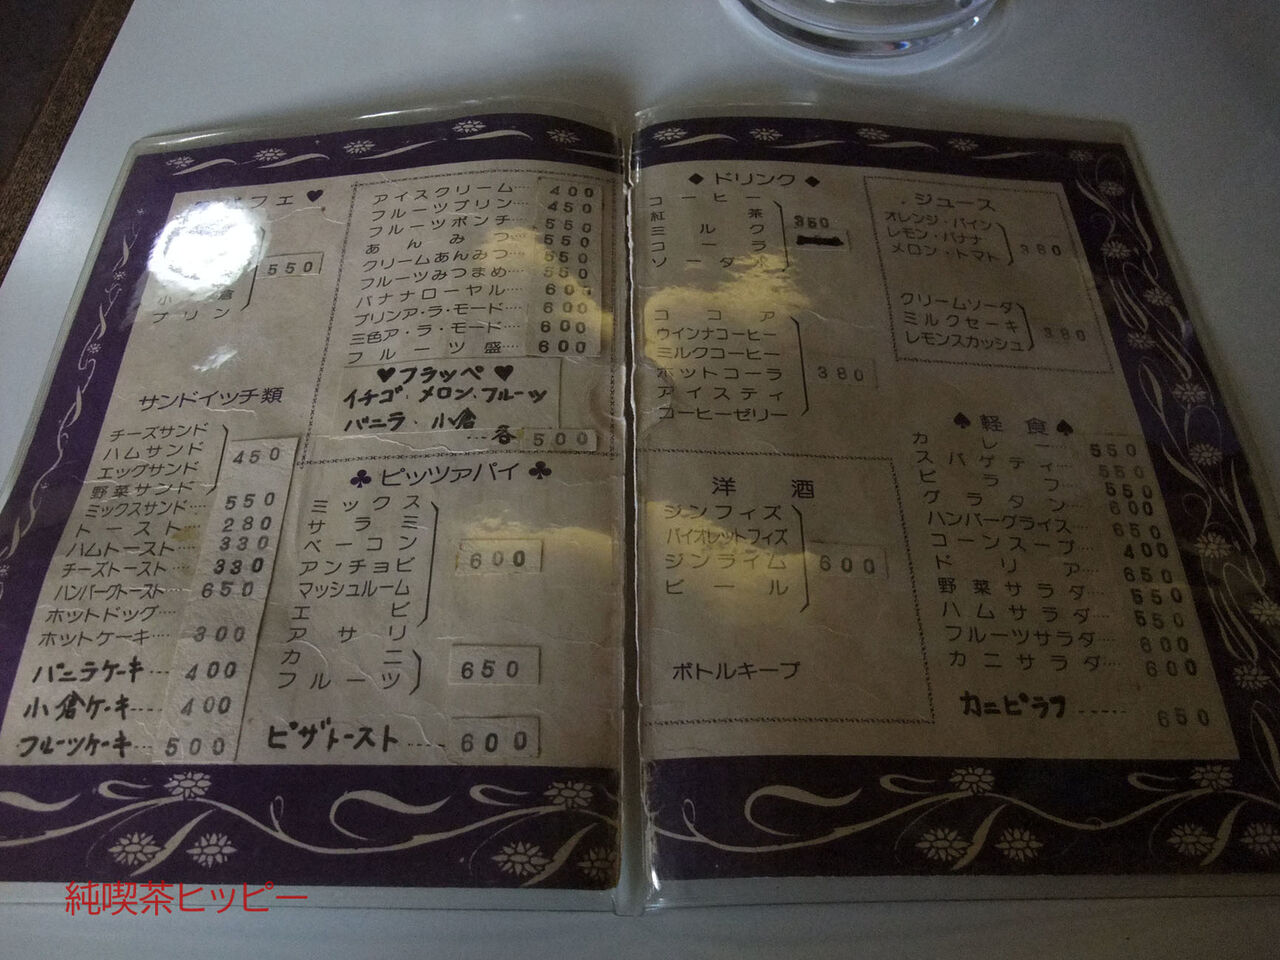 フェ ♥
550
小倉
プリン
サンドイッチ類
チーズサンド
ハムサンド
エッグサンド
野菜サンド
450
ミックスサンド…… 550
トースト…… 280
ハムトースト…… 330
チーズトースト…… 330
ハンバーグトースト…… 650
ホットドッグ……
ホットケーキ…… 300
バニラケーキ…… 400
小倉ケーキ…… 400
フルーツケーキ…… 500
アイスクリーム…… 400
フルーツプリン…… 450
フルーツポンチ…… 550
あんみつ…… 550
クリームあんみつ…… 650
フルーツみつまめ…… 550
バナナローヤル…… 600
プリンア・ラ・モード…… 600
三色ア・ラ・モード…… 600
フルーツ盛…… 600
♥フラッペ♥
イチゴ、メロン、フルーツ
バニラ・小倉
……各 500
♣ピッツァパイ♣
ミックス
サラミ
ベーコン
アンチョビ
マッシュルーム
エビ
600
アサリ
カニ
フルーツ
650
ピザトースト…… 600
◆ドリンク◆
コーヒー
紅茶
ミルク
コーラ
ソーダ水
350
ココア
ウインナコーヒー
ミルクコーヒー
ホットコーラ
アイスティ
コーヒーゼリー
380
洋酒
ジンフィズ
バイオレットフィズ
ジンライム
ビール
600
ボトルキープ
ジュース
オレンジ・パイン
レモン・バナナ
メロン・トマト
380
クリームソーダ
ミルクセーキ
レモンスカッシュ
380
♠軽食♠
カレー…… 550
スパゲティ…… 550
ピラフ…… 550
グラタン…… 600
ハンバーグライス…… 650
コーンスープ…… 400
ドリア…… 650
野菜サラダ…… 550
ハムサラダ…… 550
フルーツサラダ…… 600
カニサラダ…… 600
カニピラフ…… 650
純喫茶ヒッピー